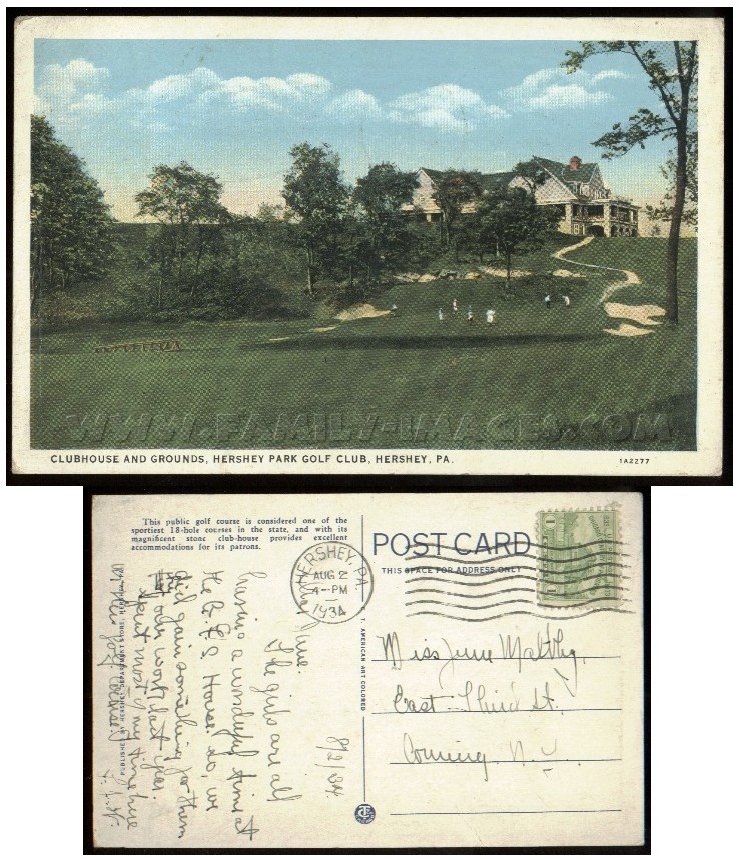 WWW.FAMILY-IMAGES.COM
CLUBHOUSE AND GROUNDS, HERSHEY PARK GOLF CLUB, HERSHEY, PA.
1A2277
This public golf course is considered one of the
sportiest 18-hole courses in the state, and with its
magnificent stone club-house provides excellent
accommodations for its patrons.
POST CARD
THIS SPACE FOR ADDRESS ONLY
HERSHEY, PA.
AUG 2
4-PM
1934
1
1
Miss June Maltby,
East Third St.,
Corning, N.Y.
C. T. AMERICAN ART COLORED
PUBLISHED BY HERSHEY DEPARTMENT STORE, HERSHEY, PA.
8/2/34
June.
The girls are all
having a wonderful time at
the House. So, we
did gain something for them
our work last year.
Spent most of my time here
golf course.